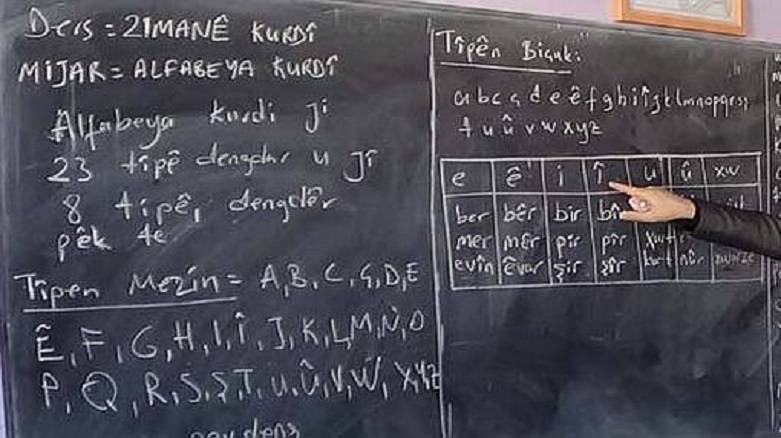 Ders = ZIMANÊ KURDÎ
MIJAR = ALFABEYA KURDÎ
Alfabeya Kurdi ji
23 tîpê dengdar u Jî
8 tîpê, dengdêr
pêk te
Tîpen Mezin = A, B, C, Ç, D, E
Ê, F, G, H, I, Î, J, K, L, M, N, O
P, Q, R, S, Ş, T, U, Û, V, W, X, Y, Z
Tîpên Biçuk:
a b c ç d e ê f g h i î j k l m n o p q r s ş
t u û v w x y z
e ê i î u û xw
ber bêr bir
mer mêr pir pîr
evîn êvar şir şîr kurt nûr